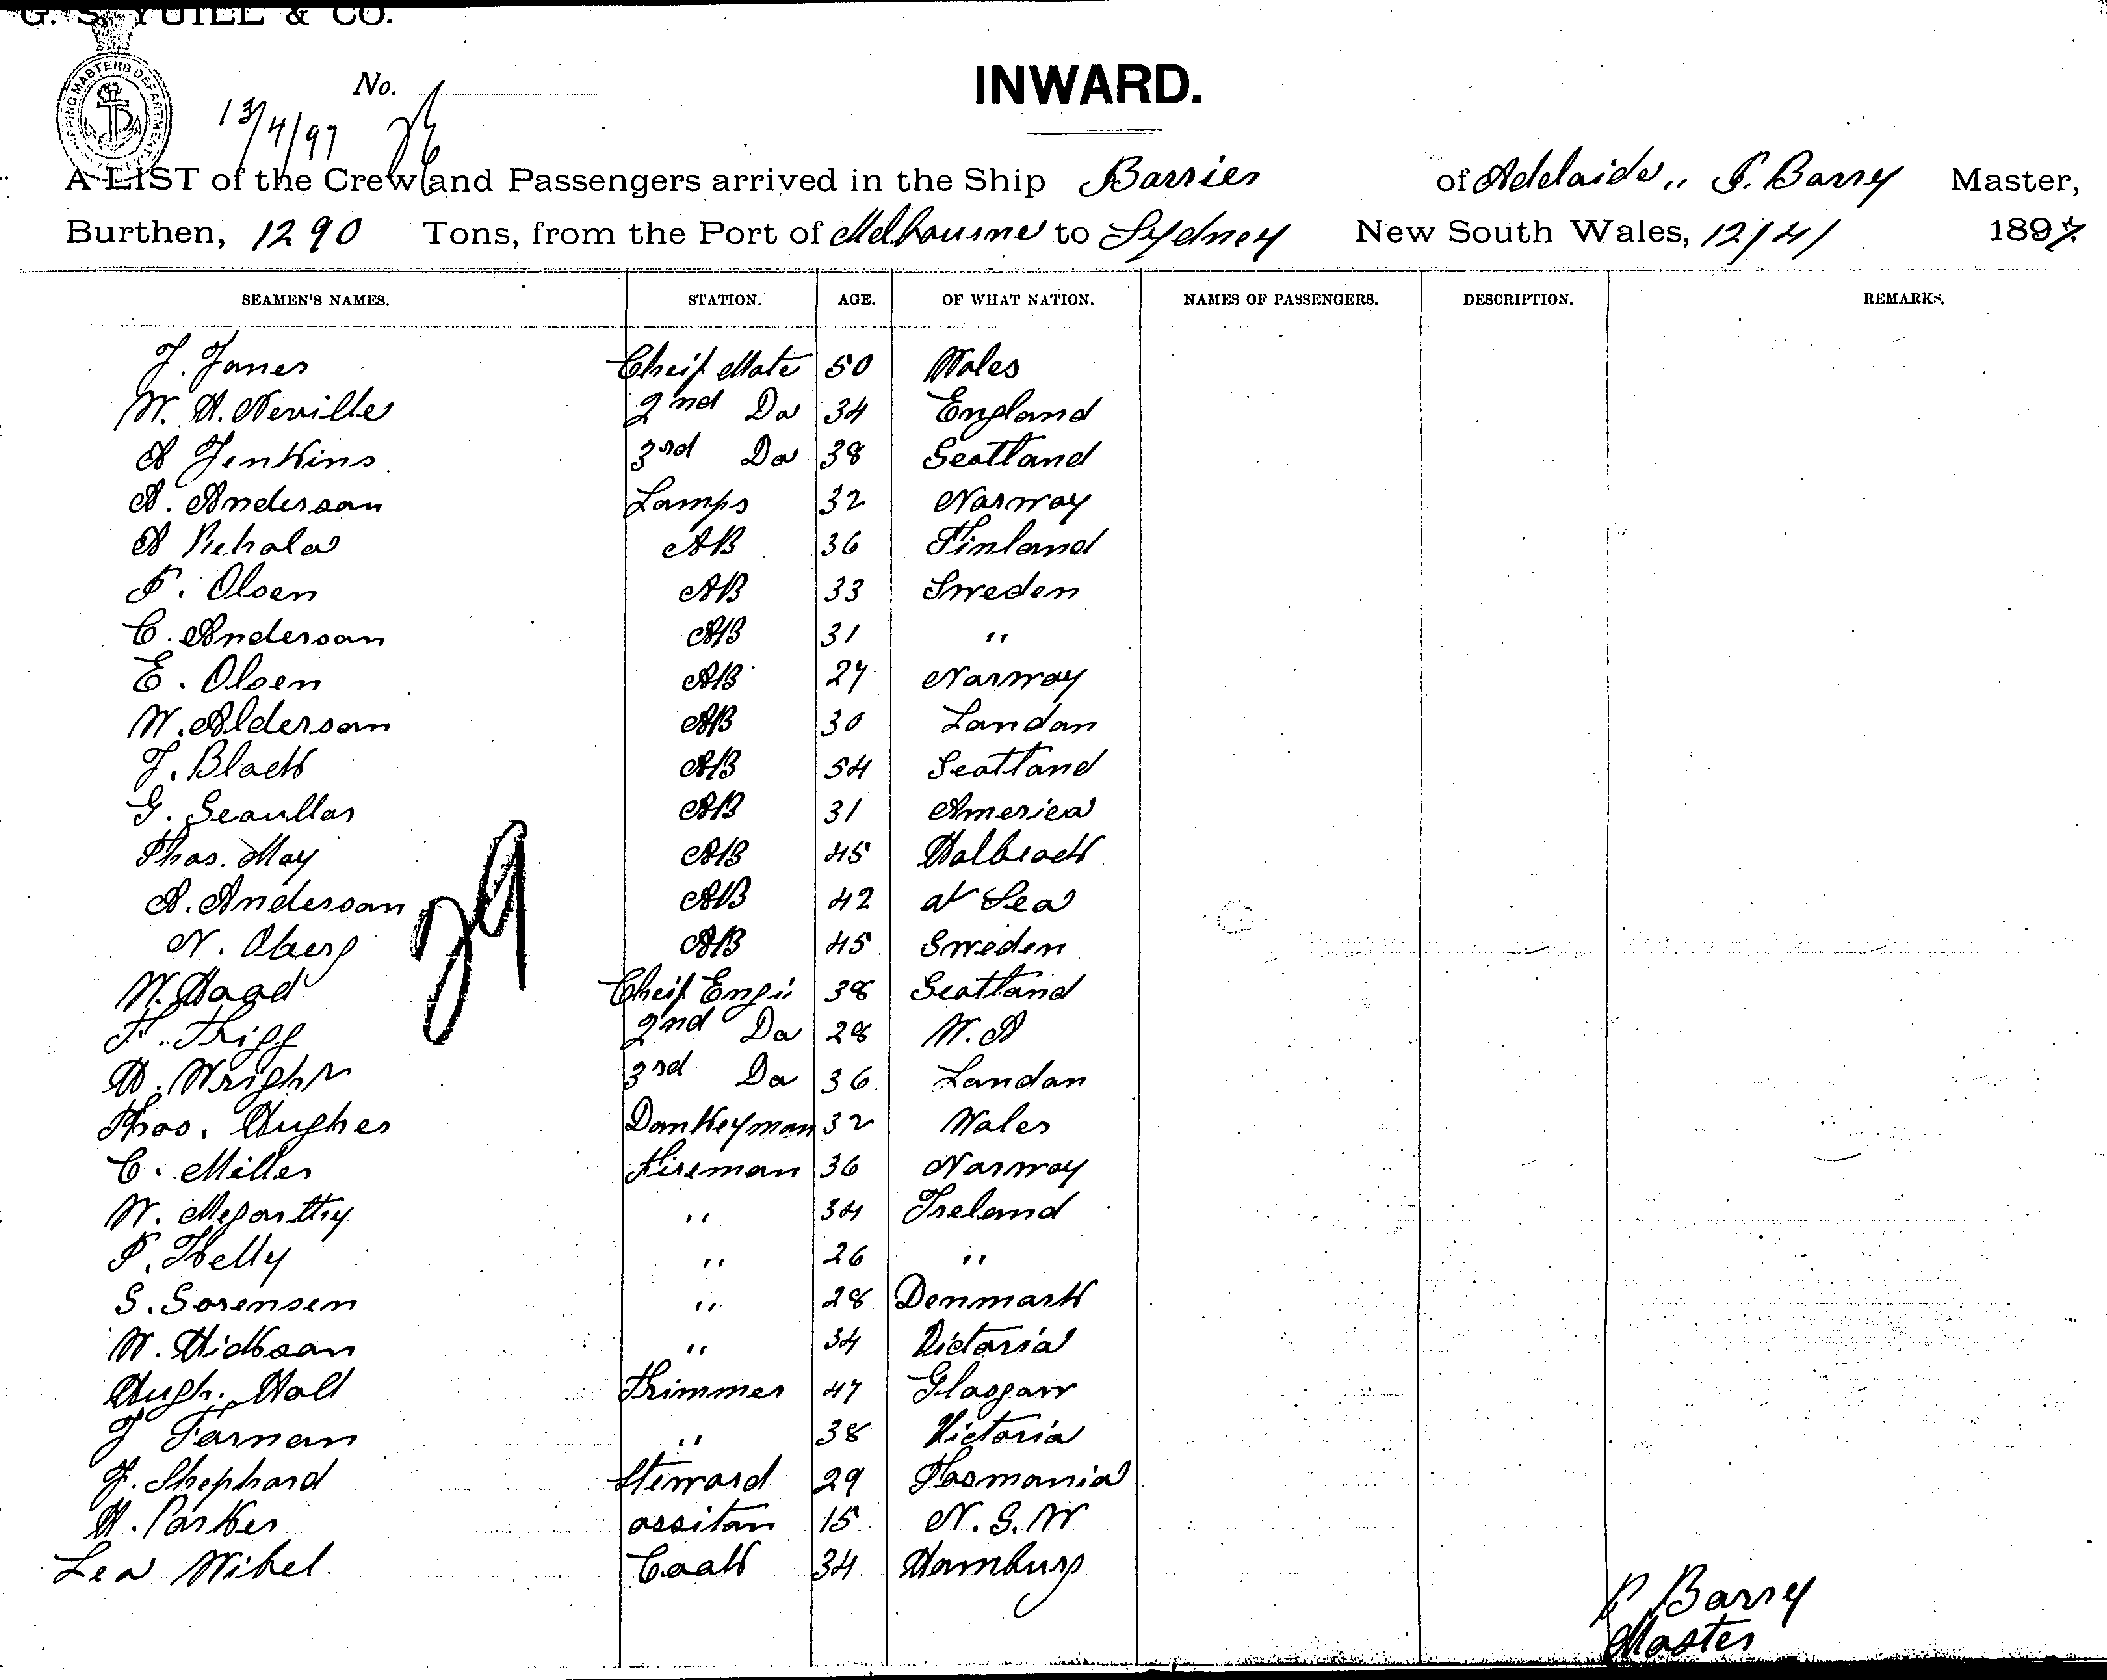 G. S. YUILL & CO.
No.
INWARD.
SHIPPING MASTERS DEPARTMENT
13/4/97
A LIST of the Crew and Passengers arrived in the Ship Barrier of Adelaide,, P. Barry Master,
Burthen, 1290 Tons, from the Port of Melbourne to Sydney New South Wales, 12/4/ 1897
SEAMEN'S NAMES. STATION. AGE. OF WHAT NATION. NAMES OF PASSENGERS. DESCRIPTION. REMARKS.
J. Jones Cheif Mate 50 Wales
W. H. Neville 2nd Do 34 England
A Jenkins 3rd Do 38 Scotland
A. Anderson Lamps 32 Norway
A AB 36 Finland
P. Olsen AB 33 Sweden
C. Anderson AB 31 "
E. Olsen AB 27 Norway
W. Alderson AB 30 London
J. Black AB 54 Scotland
G. AB 31 America
Thos. May AB 45
A. Anderson AB 42 at Sea
N. Oberg AB 45 Sweden
29
W. Hood Cheif Engi 38 Scotland
F. Trigg 2nd Do 28 W. A
H. Wright 3rd Do 36 London
Thos. Hughes Donkeyman 32 Wales
C. Miller Fireman 36 Norway
W. Megarthy " 34 Ireland
P. Kelly " 26 "
S. Sorensen " 28 Denmark
W. Hickson " 34 Victoria
Hugh. Holt Trimmer 47 Glasgow
J Farnan " 38 Victoria
J. Shephard Steward 29 Tasmania
H. Parker assitan 15 N. S. W
Leo Wikel Cook 34 Hamburg
P Barry
Master